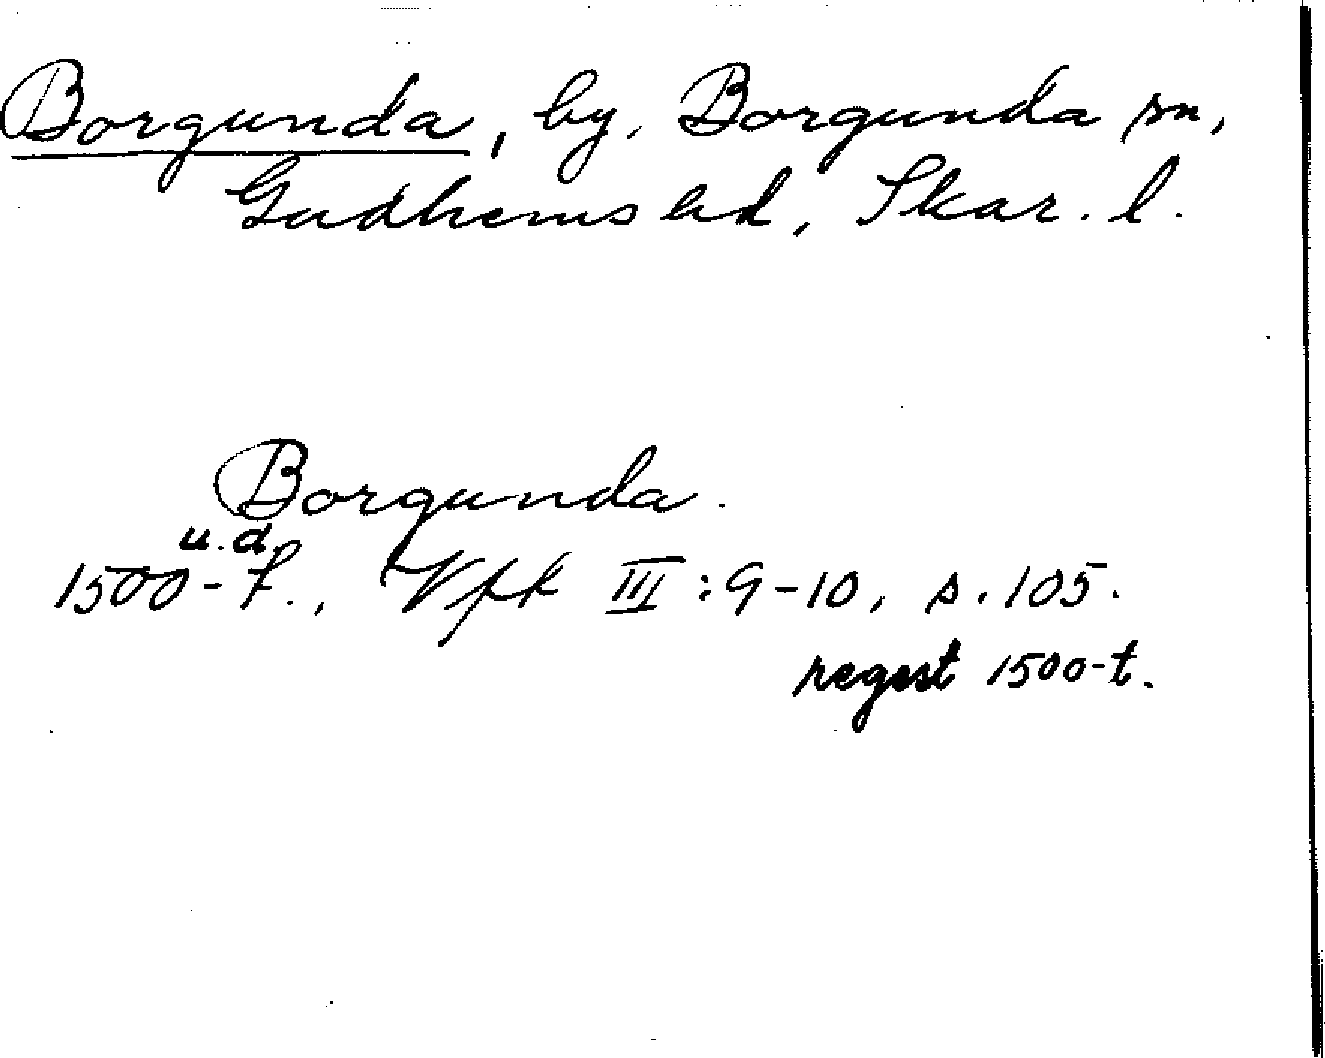 Borgunda, by, Borgunda sn,
Gudhems hd, Skar. l.
Borgunda.
u.d.
1500-t., Vfk III:9-10, s.105.
regest 1500-t.